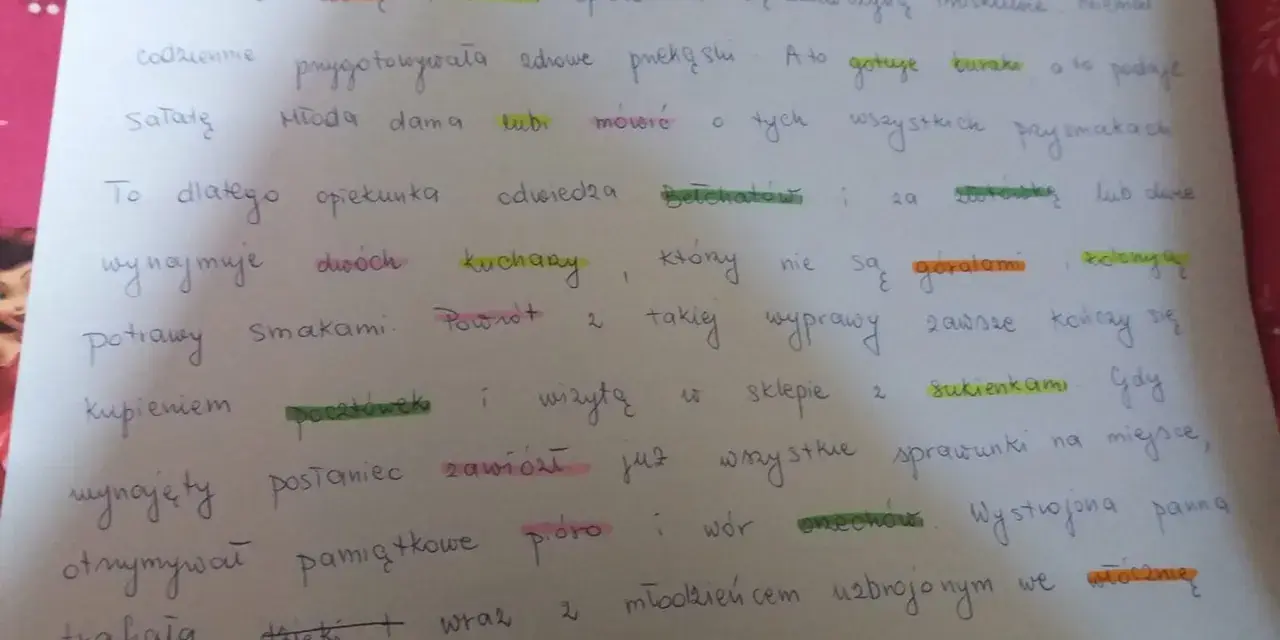 codziennie przygotowywała zdrowe przekąski. A to gotuje buraki a to podaje
sałatę Młoda dama lubi mówić o tych wszystkich przysmakach
To dlatego opiekunka odwiedza Bełchatów i za złotówkę lub dwie
wynajmuje dwóch kucharzy, którzy nie są góralami i
potrawy smakami. Powrót z takiej wyprawy zawsze kończy się
kupieniem pocztówek i wizytą w sklepie z sukienkami. Gdy
wynajęty posłaniec zawiózł już wszystkie sprawunki na miejsce,
otrzymywał pamiątkowe pióro i wór orzechów. Wystrojona panna
wraz z młodzieńcem uzbrojonym we włócznię